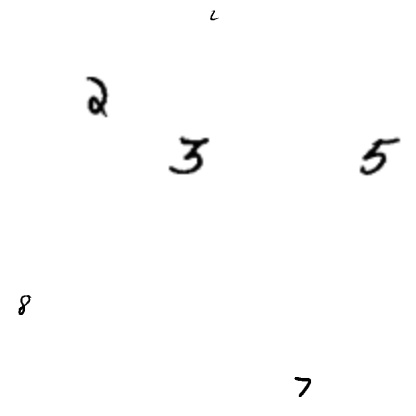 2
3 5
8
7